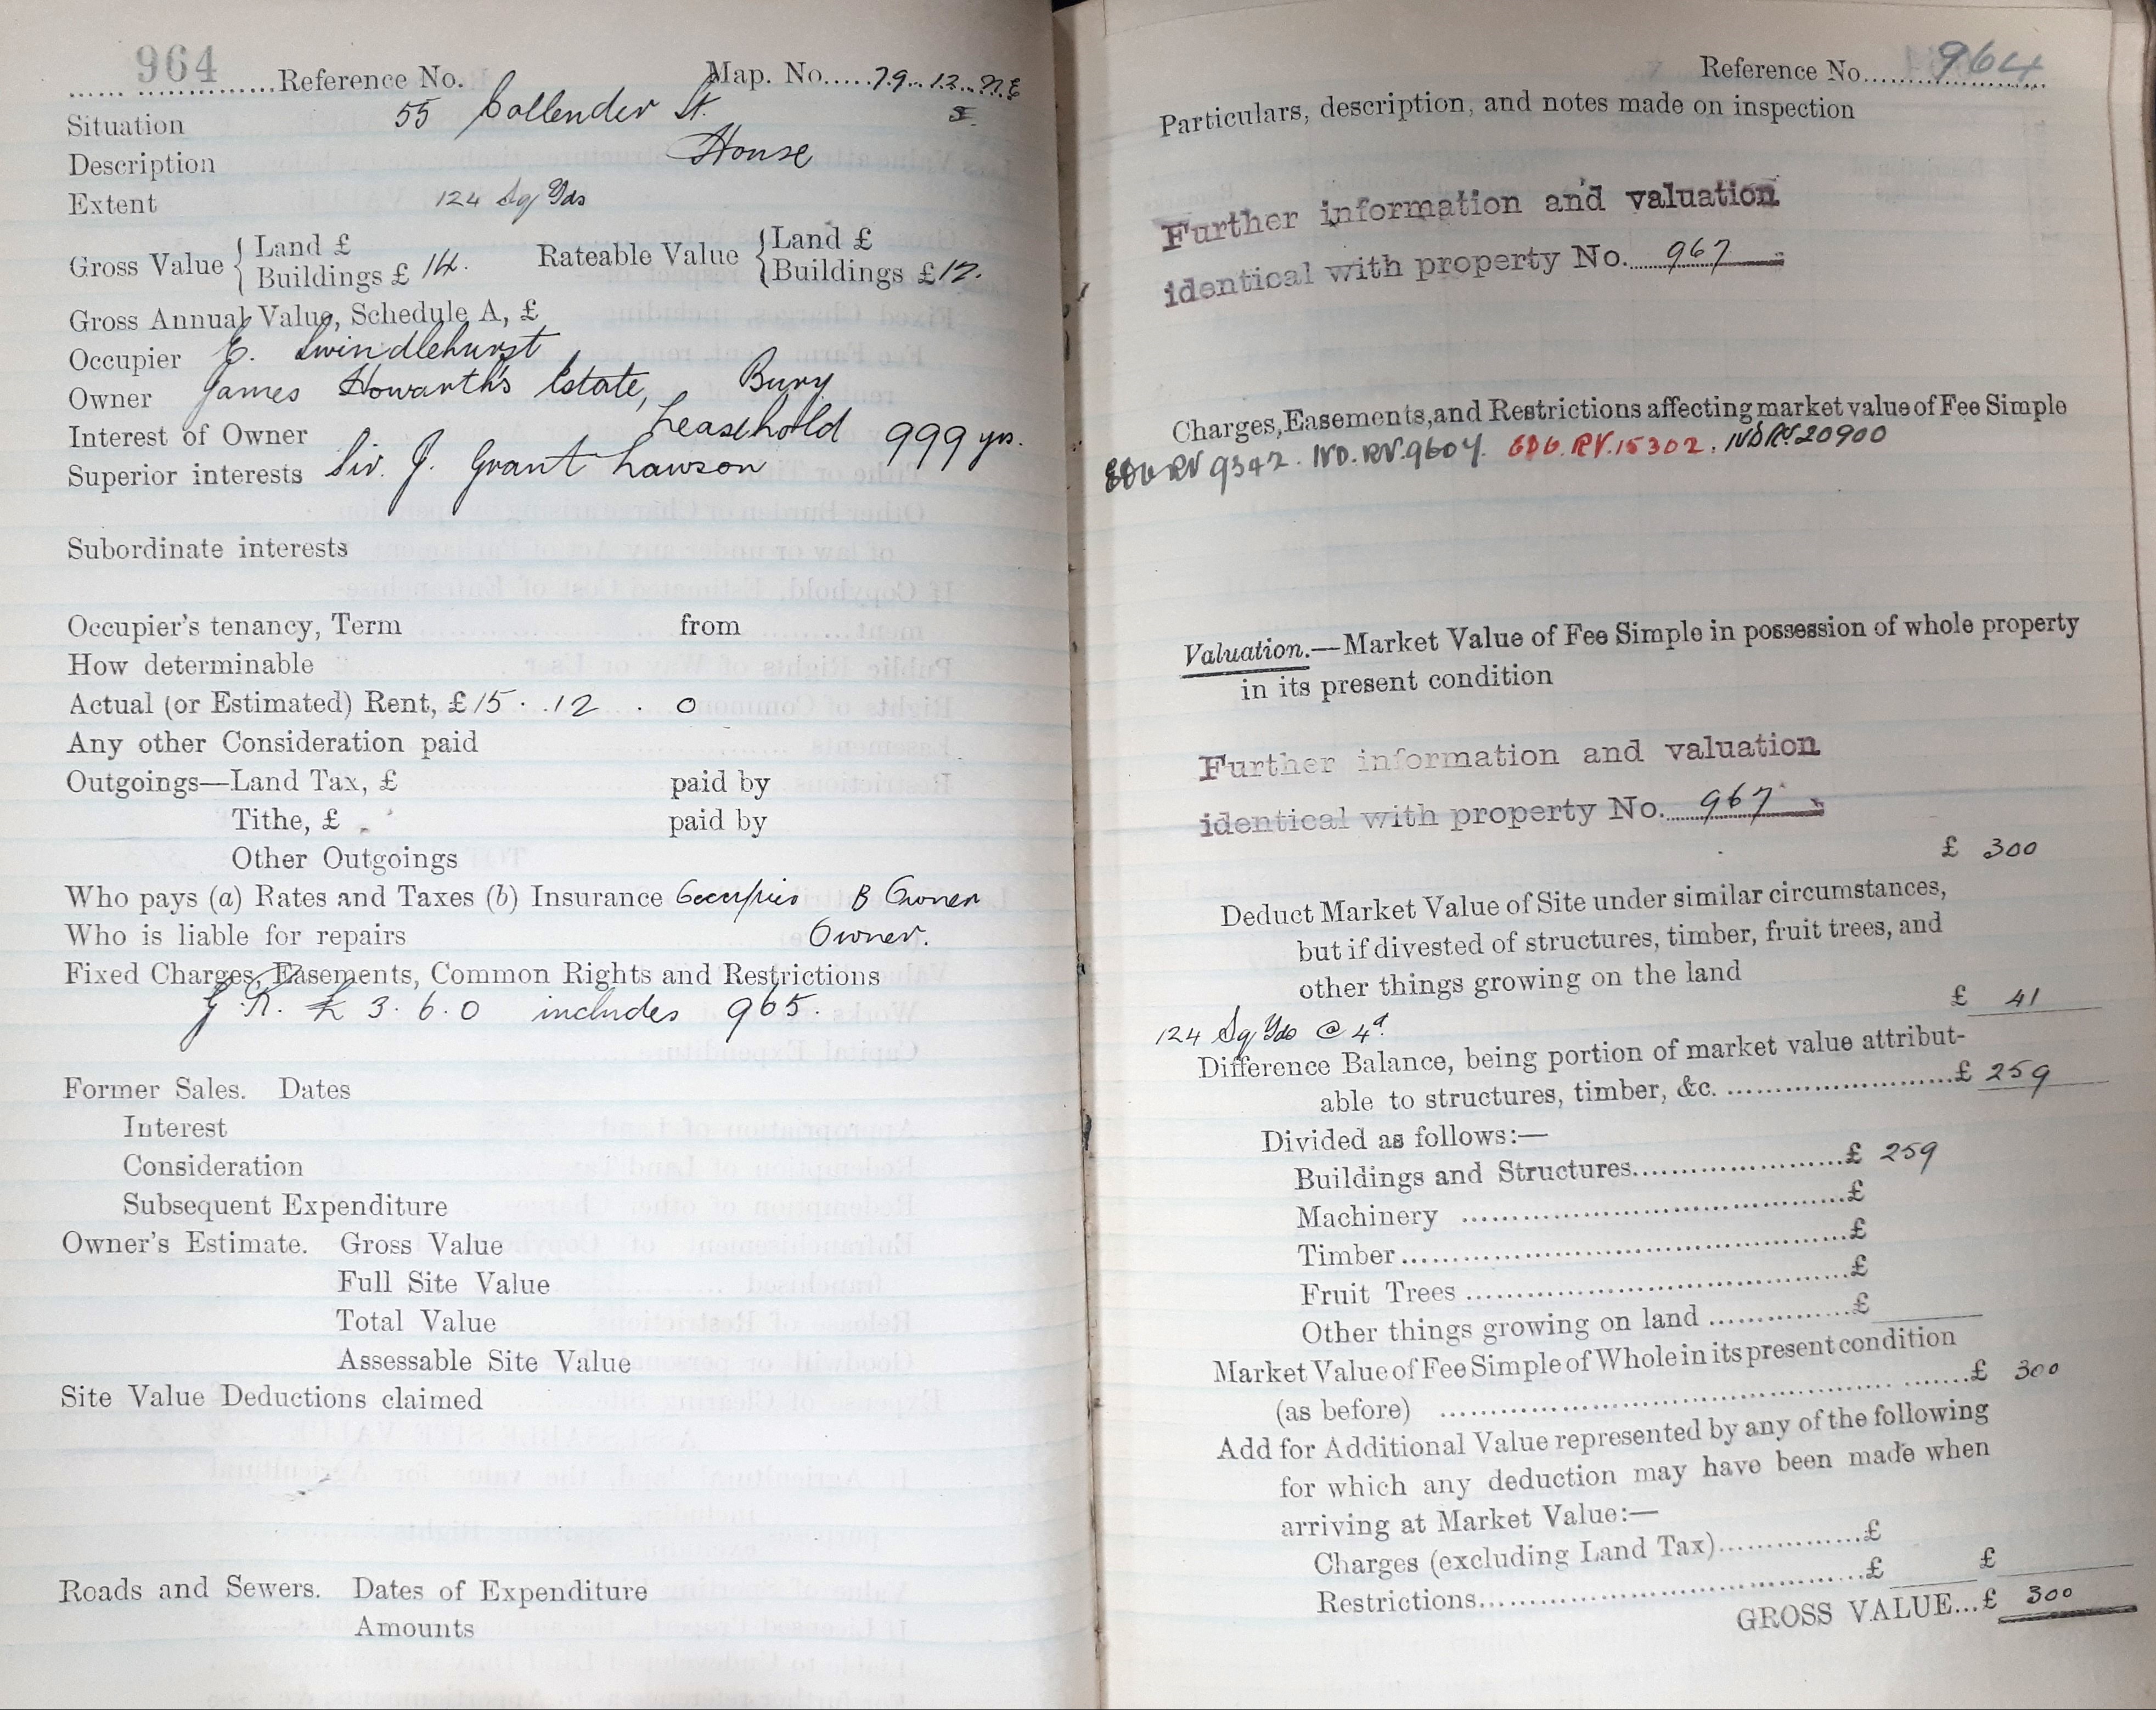 964
Reference No. Map. No. 79. 12. N.E
Situation 55 Callender St.
Description House
Extent 124 Sq Yds
Gross Value { Land £ Rateable Value { Land £
Buildings £ 14. Buildings £ 12.
Gross Annual Value, Schedule A, £
Occupier E. Swindlehurst
Owner James Howarth's Estate, Bury
Interest of Owner Leasehold 999 yrs.
Superior interests Sir. J. Grant Lawson
Subordinate interests
Occupier's tenancy, Term from
How determinable
Actual (or Estimated) Rent, £ 15 . 12 . 0
Any other Consideration paid
Outgoings—Land Tax, £ paid by
Tithe, £ paid by
Other Outgoings
Who pays (a) Rates and Taxes (b) Insurance Occupier B Owner
Who is liable for repairs Owner.
Fixed Charges, Easements, Common Rights and Restrictions
G.R. £ 3. 6. 0 includes 965.
Former Sales. Dates
Interest
Consideration
Subsequent Expenditure
Owner's Estimate. Gross Value
Full Site Value
Total Value
Assessable Site Value
Site Value Deductions claimed
Roads and Sewers. Dates of Expenditure
Amounts
Reference No. 964
Particulars, description, and notes made on inspection
Further information and valuation
identical with property No. 967
Charges, Easements, and Restrictions affecting market value of Fee Simple
RV 9342. IVD. RV. 9604. EDG. RV. 15302. IVD RV. 20900
Valuation.—Market Value of Fee Simple in possession of whole property
in its present condition
Further information and valuation
identical with property No. 967
£ 300
Deduct Market Value of Site under similar circumstances,
but if divested of structures, timber, fruit trees, and
other things growing on the land
£ 41
124 Sq Yds @ 4d.
Difference Balance, being portion of market value attribut-
able to structures, timber, &c. £ 259
Divided as follows:—
Buildings and Structures £ 259
Machinery £
Timber £
Fruit Trees £
Other things growing on land £
Market Value of Fee Simple of Whole in its present condition
(as before) £ 300
Add for Additional Value represented by any of the following
for which any deduction may have been made when
arriving at Market Value:—
Charges (excluding Land Tax) £
Restrictions £ £
GROSS VALUE...£ 300